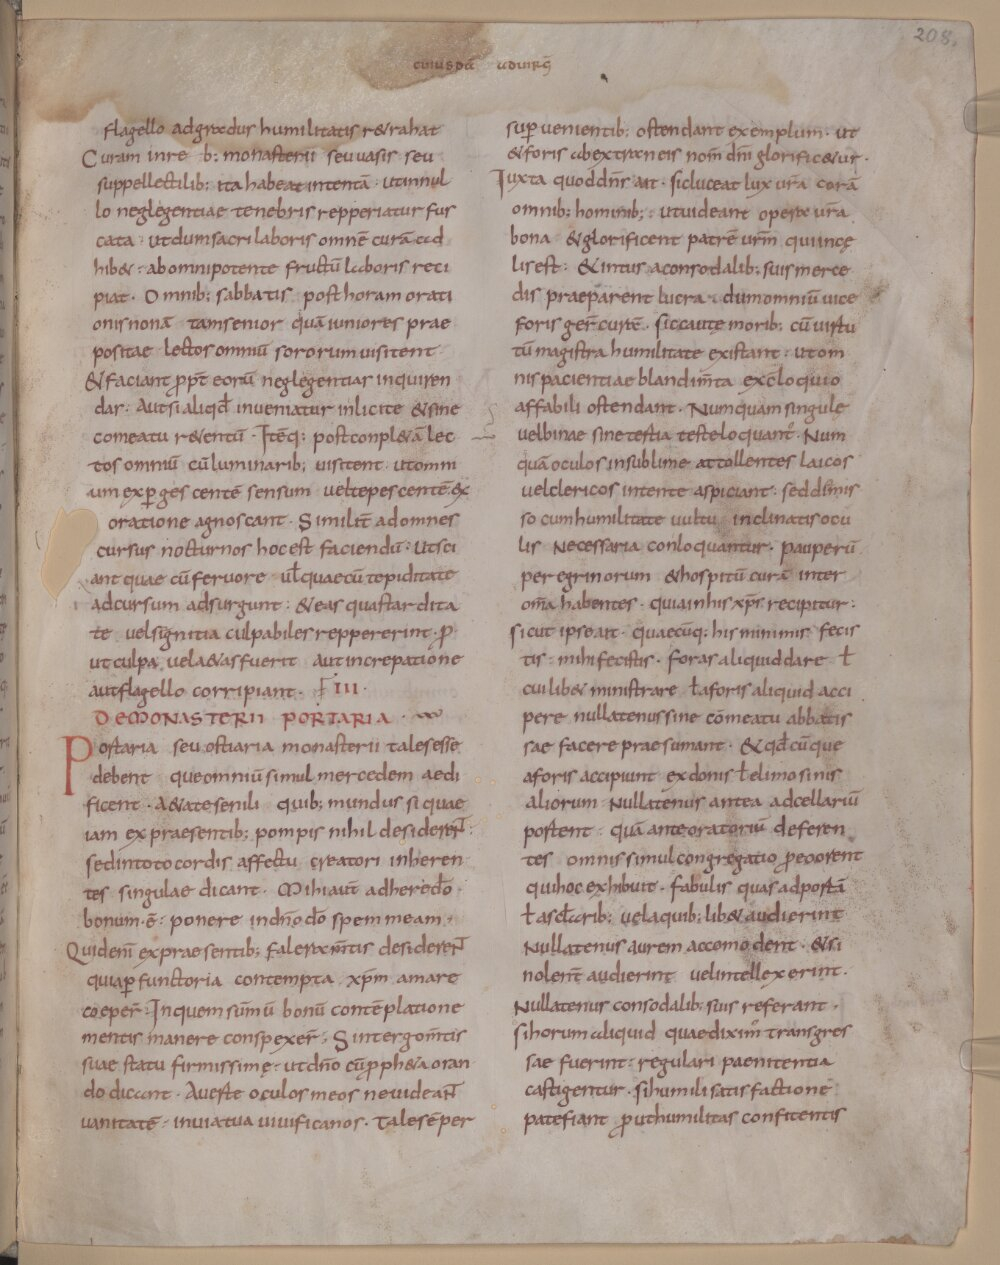 208.
cuiusdā aduirg̅
flagello adgradus humilitatis r&rahat
Curam inre b; monasterii seuuasis seu
suppellectilib; ita habeat intentā · utinnul
lo neglegentiae tenebris repperiatur fus
cata · utdumsacri laboris omnē curā ad
hib& · abomnipotente fructū laboris reci
piat · Omnib; sabbatis posthoram orati
onisnonā tamsenior quāiuniores prae
positae lectos omniū sororum uisitent
&faciant ꝓpt̄ eorū neglegentias inquiren
das · Autsi aliqd̄ inueniatur inlicite &sine
comeatu r&entū · Itēq; postconpl&ā lec
tos omniū cūluminarib; uisitent · utomni
um exꝑgescentē sensum uel tepescentē ex
oratione agnoscant · Similit̄ adomnes
cursus nocturnos hocest faciendū · utsci
ant quae cūferuore ul̄ quaecū tepiditate
adcursum adsurgunt · &eas quastardita
te uelsignitia culpabiles reppererint · ꝓ
utculpa uela&asfuerit aut increpatione
autflagello corripiant · III ·
DEMONASTERII PORTARIA ·
Portaria seu ostiaria monasterii talesesse
debent queomniūsimul mercedem aedi
ficent · A&atesenili quib; mundus siquae
iam expraesentib; pompis nihil desiderēN̄ ·
sedintoto cordis affectu creatori inheren
tes singulae dicant · Mihiaut̄ adheredō
bonum · ē · ponere indn̄o dō spem meam ·
Quidenī expraesentib; falerxm̄tis desiderēN̄
quiaꝑfunctoria contempta xp̄m amare
coeper̄ · Inquem sūmū bonū contēplatione
mentis manere conspexer̄ · Sintergom̄tis
suae statu firmissimę · utdn̄o cūꝓph&a oran
do dicant · Auerte oculos meos neuideaN̄
uanitatē · inuiatua uiuificanos · Talesēper
suꝑuenientib; ostendant exemplum · ut
&foris abextraneis nom̄ dn̄i glorific&ur ·
Iuxta quoddn̄s ait · sicluceat lux ur̄a corā
omnib; hominib; · utuideant opera ur̄a
bona &glorificent patrē ur̄m quiincę
lisest · &intus aconsodalib; suis merce
dis praeparent lucra · dumomniū uice
foris ger̄ curēt · siccaute morib; cū uirtu
tū magistra humilitate existant · utom
nispacientiae blandim̄ta exēloquio
affabili ostendant · Numquam singule
uelbinae sinetestia testeloquant᷑ · Num
quāoculos insublime attollentes laicos
uelclericos intente aspiciant · seddimis
so cumhumilitate uultu inclinatisocu
lis Necessaria conloquantur · pauperū
peregrinorum &hospitū curā inter
om̄a habentes · quiainhis xp̄s recipitur ·
sicut ipseait · quaecūq; hisminimis fecis
tis · mihifecistis · foras aliquiddare ł
cuilib& ministrare łaforis aliquid acci
pere nullatenussine cōmeatu abbatis
sae facere praesumant · &qd̄ cūque
aforis accipiunt exdonis łelimosinis
aliorum · Nullatenus antea adcellariū
portent · quāanteoratoriū deferen
tes omnissimulcongregatio ꝓeoorent
quihoc exhibuit · fabulis quasadportā
łascl̄arib; uelaquib; lib& audierint
Nullatenus aurem accomodent · &si
nolent̄ audierint uelintellexerint ·
Nullatenus consodalib; suis referant ·
sihorum aliquid quaediximꝰ transgres
sae fuerint · regulari paenitentia
castigentur · sihumili satisfactione
patefiant ꝓuthumilitas confitentis